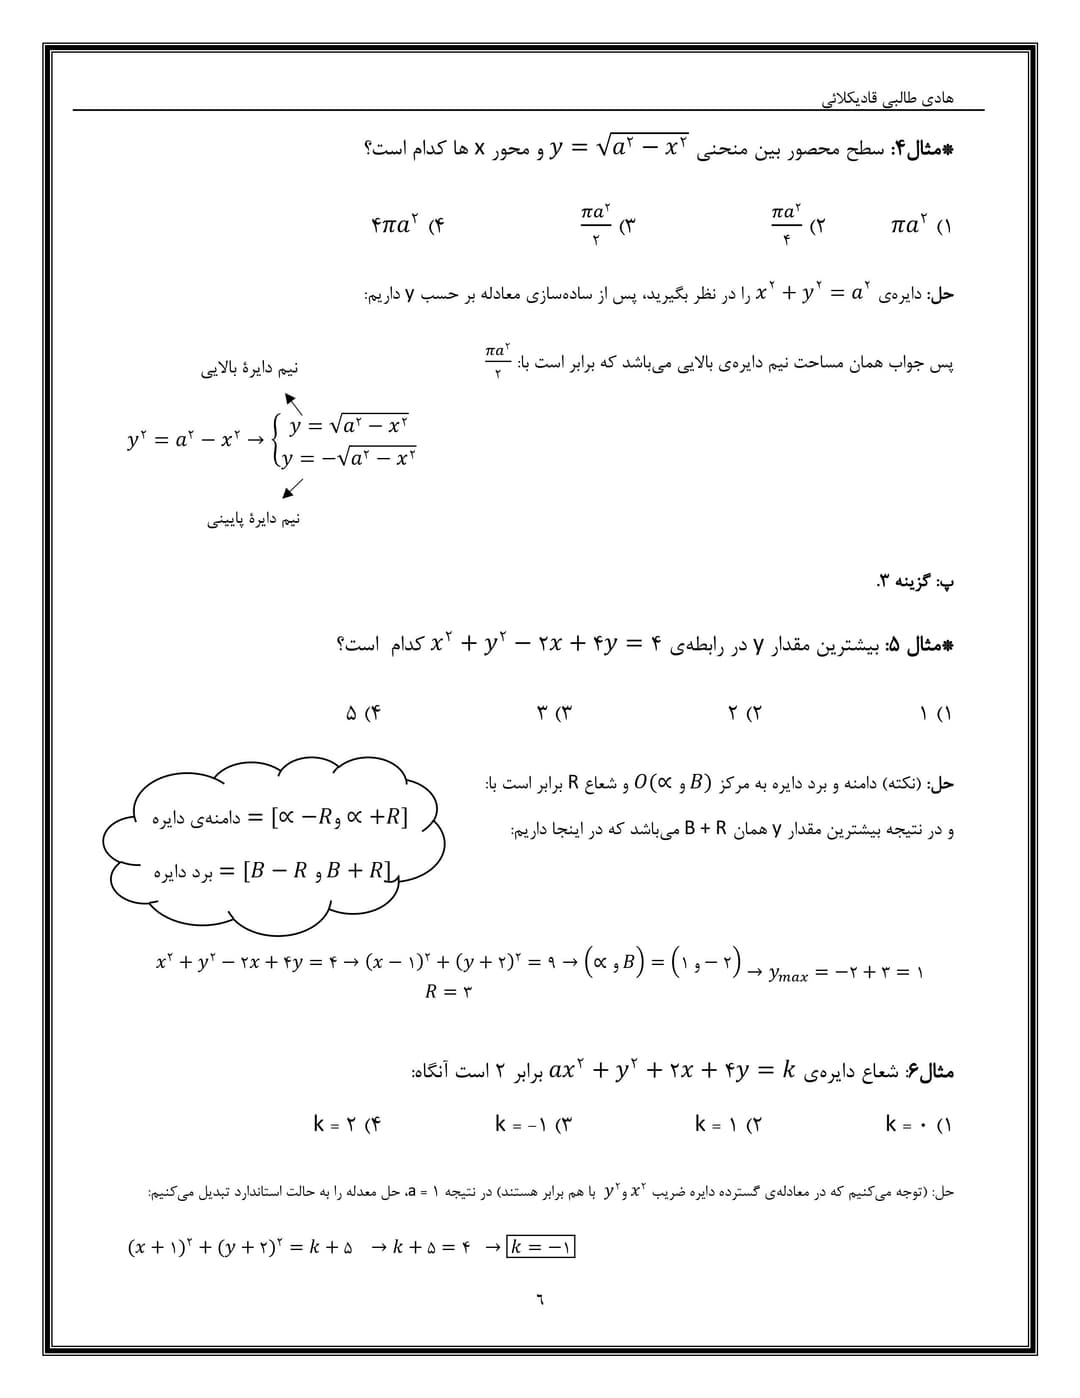 هادی طالبی قادیکلائی
*مثال۴: سطح محصور بین منحنی y = √(a² − x²) و محور x ها کدام است؟
۱) πa^۲ ۲) πa^۲/۴ ۳) πa^۲/۲ ۴) ۴πa^۲
حل: دایره‌ی x^۲ + y^۲ = a^۲ را در نظر بگیرید، پس از ساده‌سازی معادله بر حسب y داریم:
پس جواب همان مساحت نیم دایره‌ی بالایی می‌باشد که برابر است با: πa^۲/۲
نیم دایرۀ بالایی
y^۲ = a^۲ − x^۲ → { y = √(a^۲ − x^۲)
y = −√(a^۲ − x^۲)
نیم دایرۀ پایینی
پ: گزینه ۳.
*مثال ۵: بیشترین مقدار y در رابطه‌ی x^۲ + y^۲ − ۲x + ۴y = ۴ کدام است؟
۱) ۱ ۲) ۲ ۳) ۳ ۴) ۵
حل: (نکته) دامنه و برد دایره به مرکز O(∝ و B) و شعاع R برابر است با:
و در نتیجه بیشترین مقدار y همان B + R می‌باشد که در اینجا داریم:
دامنه‌ی دایره = [∝ −R و ∝ +R]
برد دایره = [B − R و B + R]
x^۲ + y^۲ − ۲x + ۴y = ۴ → (x − ۱)^۲ + (y + ۲)^۲ = ۹ → (∝ و B) = (۱ و − ۲) → y_max = −۲ + ۳ = ۱
R = ۳
مثال۶: شعاع دایره‌ی ax^۲ + y^۲ + ۲x + ۴y = k برابر ۲ است آنگاه:
۱) k = ۰ ۲) k = ۱ ۳) k = −۱ ۴) k = ۲
حل: (توجه می‌کنیم که در معادله‌ی گسترده دایره ضریب x^۲ و y^۲ با هم برابر هستند) در نتیجه a = ۱، حل معدله را به حالت استاندارد تبدیل می‌کنیم:
(x + ۱)^۲ + (y + ۲)^۲ = k + ۵ → k + ۵ = ۴ → k = −۱
٦